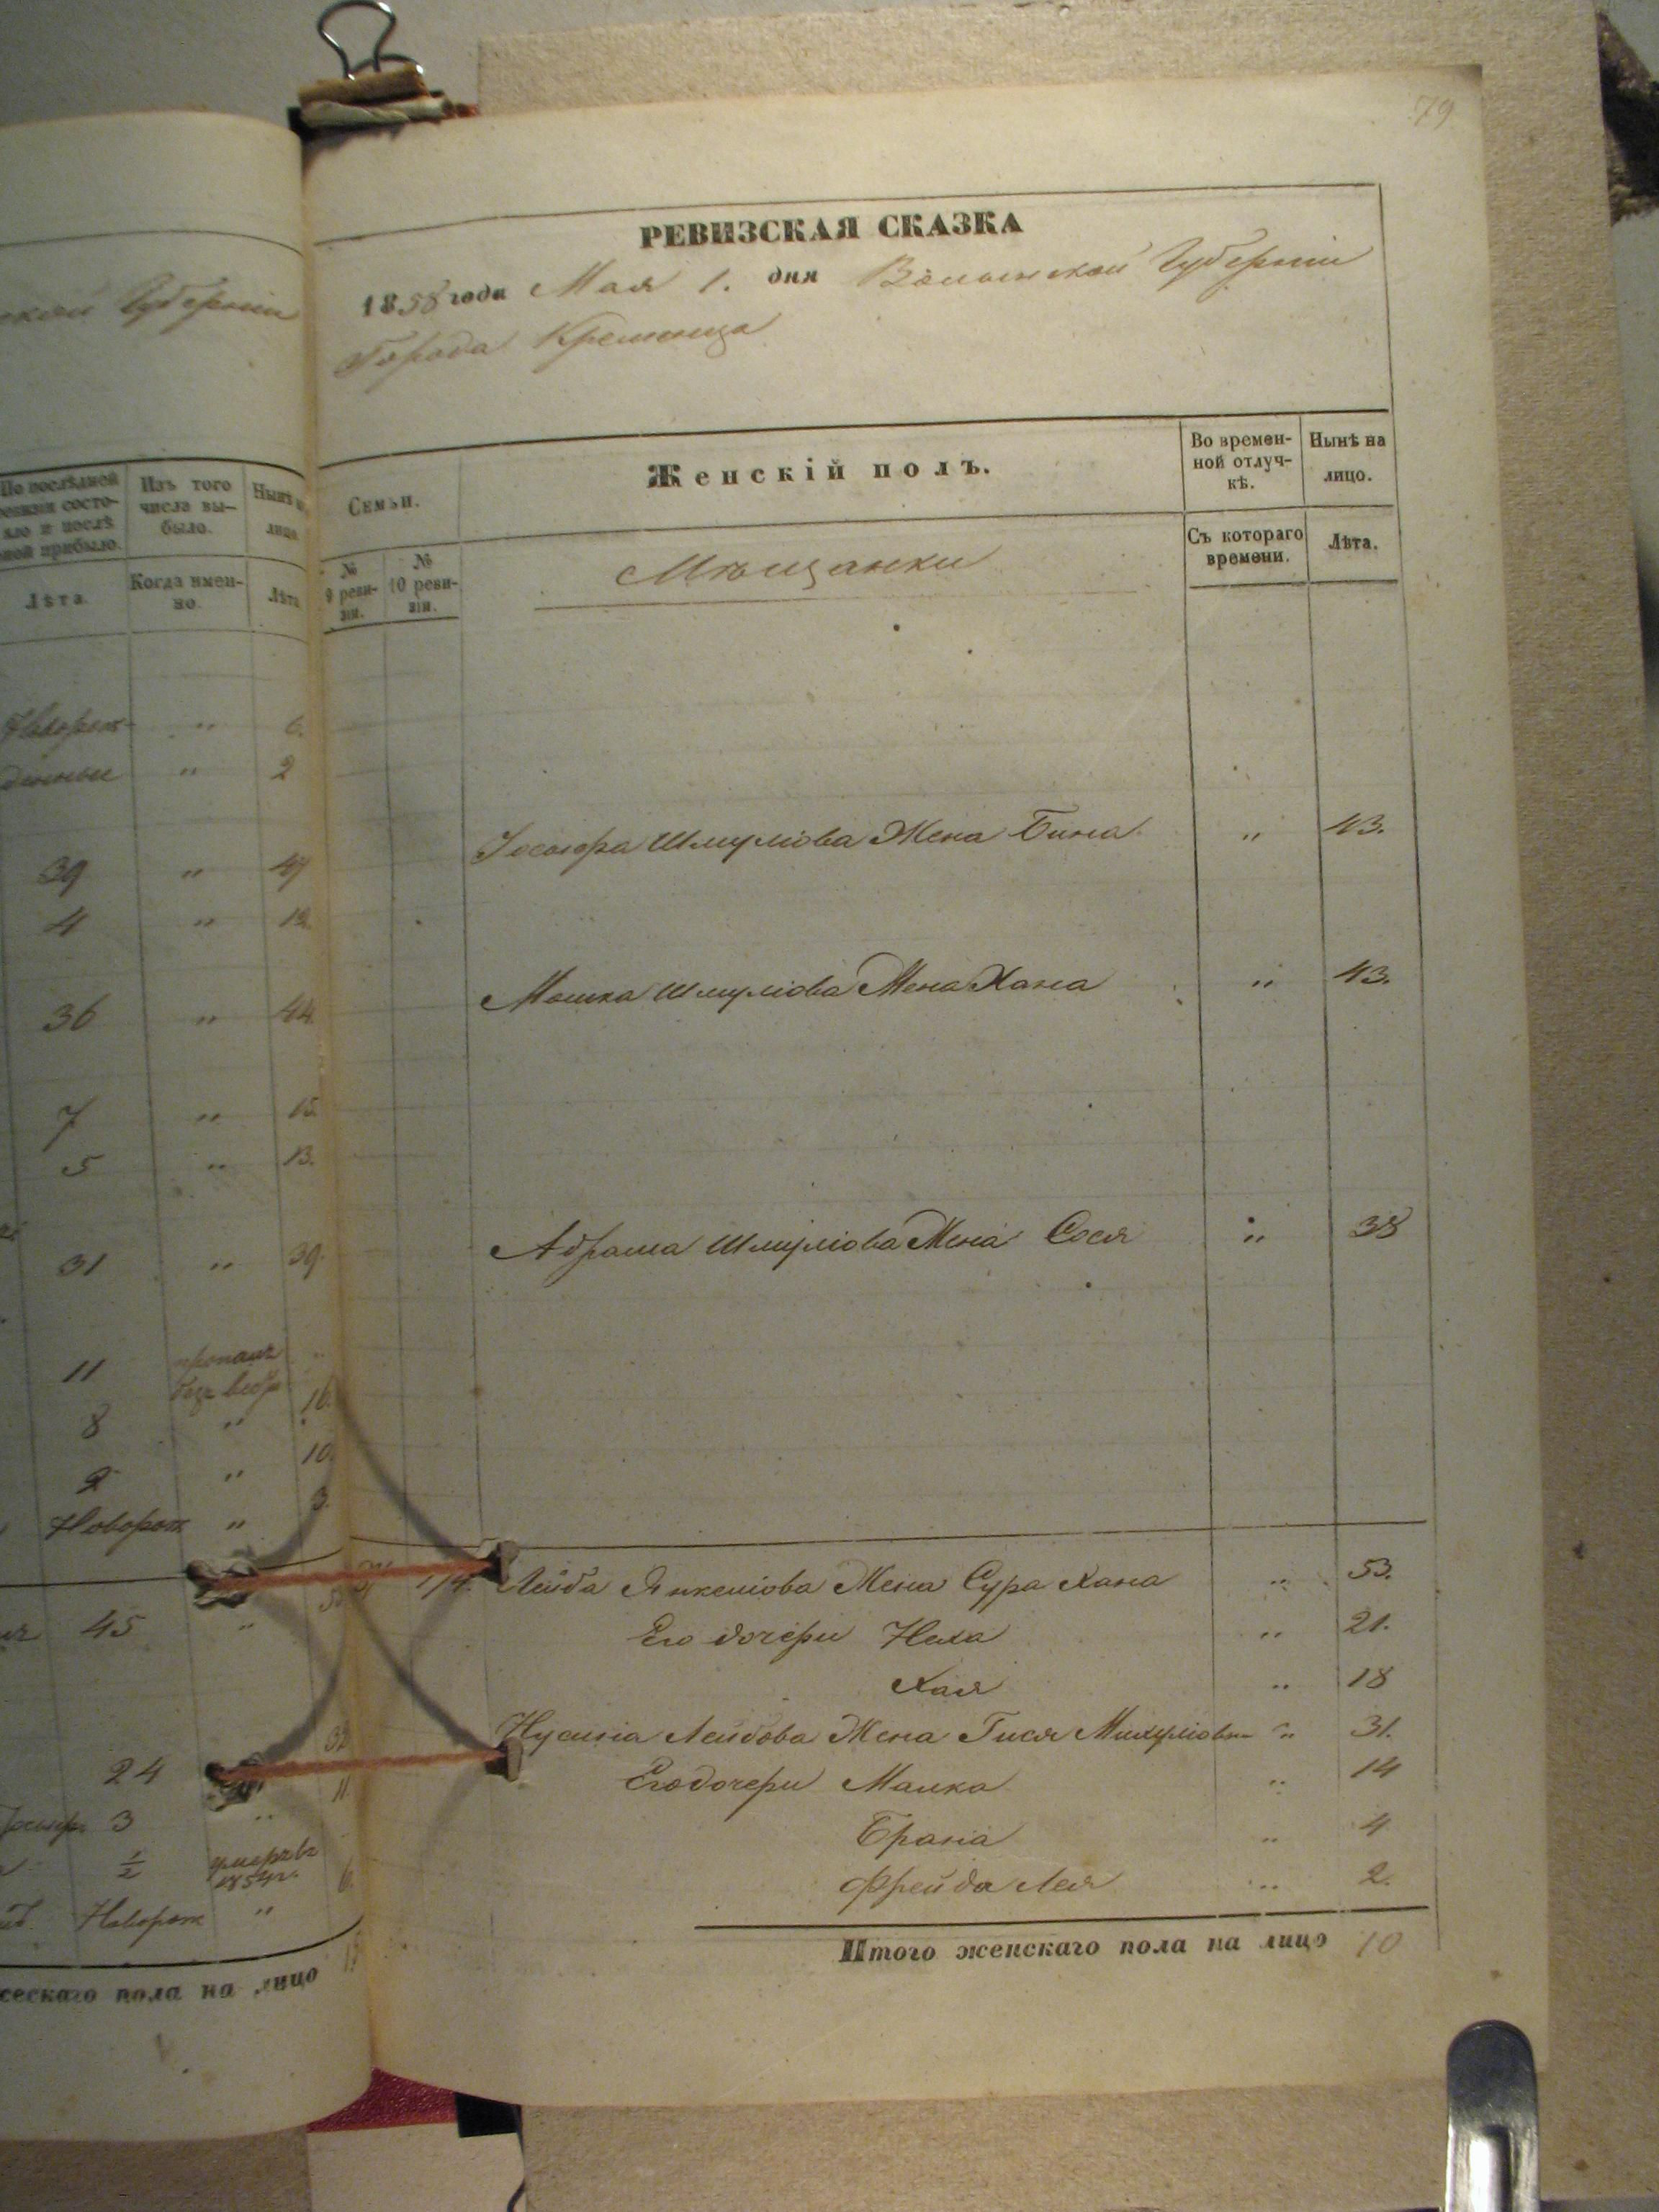 79
РЕВИЗСКАЯ СКАЗКА
1858 года Мая 1. дня Волынской Губерніи
Города Кременца
Семьи.
Женскій полъ.
Во времен-
ной отлуч-
кѣ.
Нынѣ на
лицо.
№
9 реви-
зіи.
№
10 реви-
зіи.
Мѣщанки
Съ котораго
времени.
Лѣта.
Іосьифа Шмулiова Жена Бина " 43.
Мошка Шмулiова Жена Хана " 43.
Абрама Шмулiова Жена Сося " 38
Лейба Янкелiова Жена Сура Хана " 53.
Его дочери Неха " 21.
Хая " 18
Нусина Лейбова Жена Гися " 31.
Его дочери Малка " 14
Брана " 4
Фрейда Лея " 2.
Итого женскаго пола на лицо 10
Губерніи
По послѣдней
ревизіи состо-
яло и послѣ
оной прибыло.
Изъ того
числа вы-
было.
Нынѣ на
лицо.
Лѣта.
Когда имен-
но.
Лѣта
Новорож- " 6.
денные " 2
39 " 47
4 " 12
36 " 44.
7 " 15.
5 " 13.
31 " 39.
11 пропалъ
безъ вести
8 " 16.
2 " 10.
Новорож " 3.
45 "
24 32
3 " 11.
1/2 умеръ въ
1854 г.
Новорож " 6.
ческаго пола на лицо